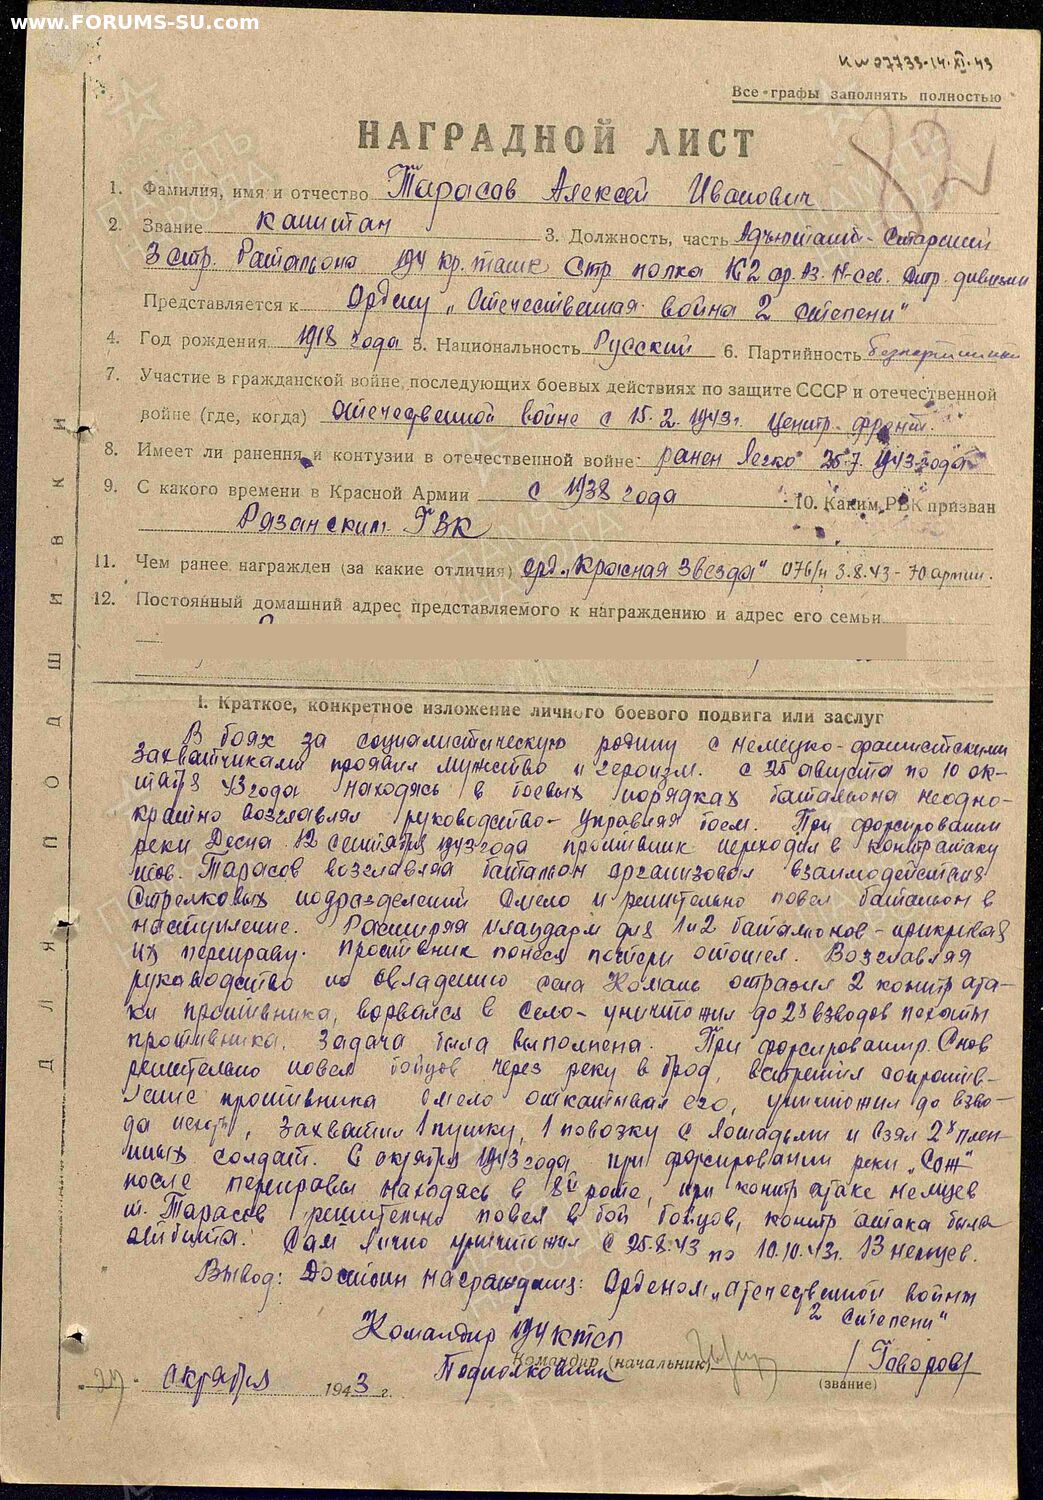 www.FORUMS-SU.com
Все графы заполнять полностью
82
НАГРАДНОЙ ЛИСТ
1. Фамилия, имя и отчество Тарасов Алексей Иванович
2. Звание капитан 3. Должность, часть Адъютант-Старший
3 стр. Батальона 194 кр. стр полка 2 стр. дивизии
Представляется к Ордену „Отечественная война 2 степени"
4. Год рождения 1918 года 5. Национальность Русский 6. Партийность безпартийный
7. Участие в гражданской войне, последующих боевых действиях по защите СССР и отечественной
войне (где, когда) Отечественной войне с 15.2.1943г. Центр. фронт.
8. Имеет ли ранения и контузии в отечественной войне ранен легко 25.7.1943 года
9. С какого времени в Красной Армии с 1938 года 10. Каким РВК призван
Рязанским ГВК
11. Чем ранее награжден (за какие отличия) орд. „Красная Звезда" 076/н 3.8.43-70 армии.
12. Постоянный домашний адрес представляемого к награждению и адрес его семьи
I. Краткое, конкретное изложение личного боевого подвига или заслуг
В боях за социалистическую родину с немецко-фашистскими
захватчиками проявил мужество и героизм. с 25 августа по 10 ок-
тября 43 года находясь в боевых порядках батальона неодно-
кратно возглавлял руководство-управляя боем. При форсировании
реки Десна 12 сентября 1943 года противник переходил в контратаку
Тарасов возглавляя батальон организовал взаимодействия
стрелковых подразделений смело и решительно повел батальон в
наступление. Расширяя плацдарм для 1 и 2 батальонов-прикрывая
их переправу. Противник понеся потери отошел. Возглавляя
руководство по овладению села Комань отразил 2 контр ата-
ки противника, ворвался в село-уничтожил до 2х взводов пехоты
противника. Задача была выполнена. При форсировании р. Снов
решительно повел бойцов через реку в брод, встретил сопротив-
ление противника смело отк его, уничтожил до взво-
да пехоты, захватил 1 пушку, 1 повозку с лошадьми и взял 2х плен-
ных солдат. октября 1943 года при форсировании реки „Сож"
после переправы находясь в 8й роте, при контр атаке немцев
т. Тарасов решительно повел в бой бойцов, контр атака была
отбита. Сам лично уничтожил с 25.8.43 по 10.10.43г. 13 немцев.
Вывод: Достоин награждения: Орденом „Отечественной войны
2 степени"
Командир 194 КТСП
Подполковник Командир (начальник) /Говоров/
(звание)
27 октября 1943 г.
ДЛЯ ПОДШИВКИ